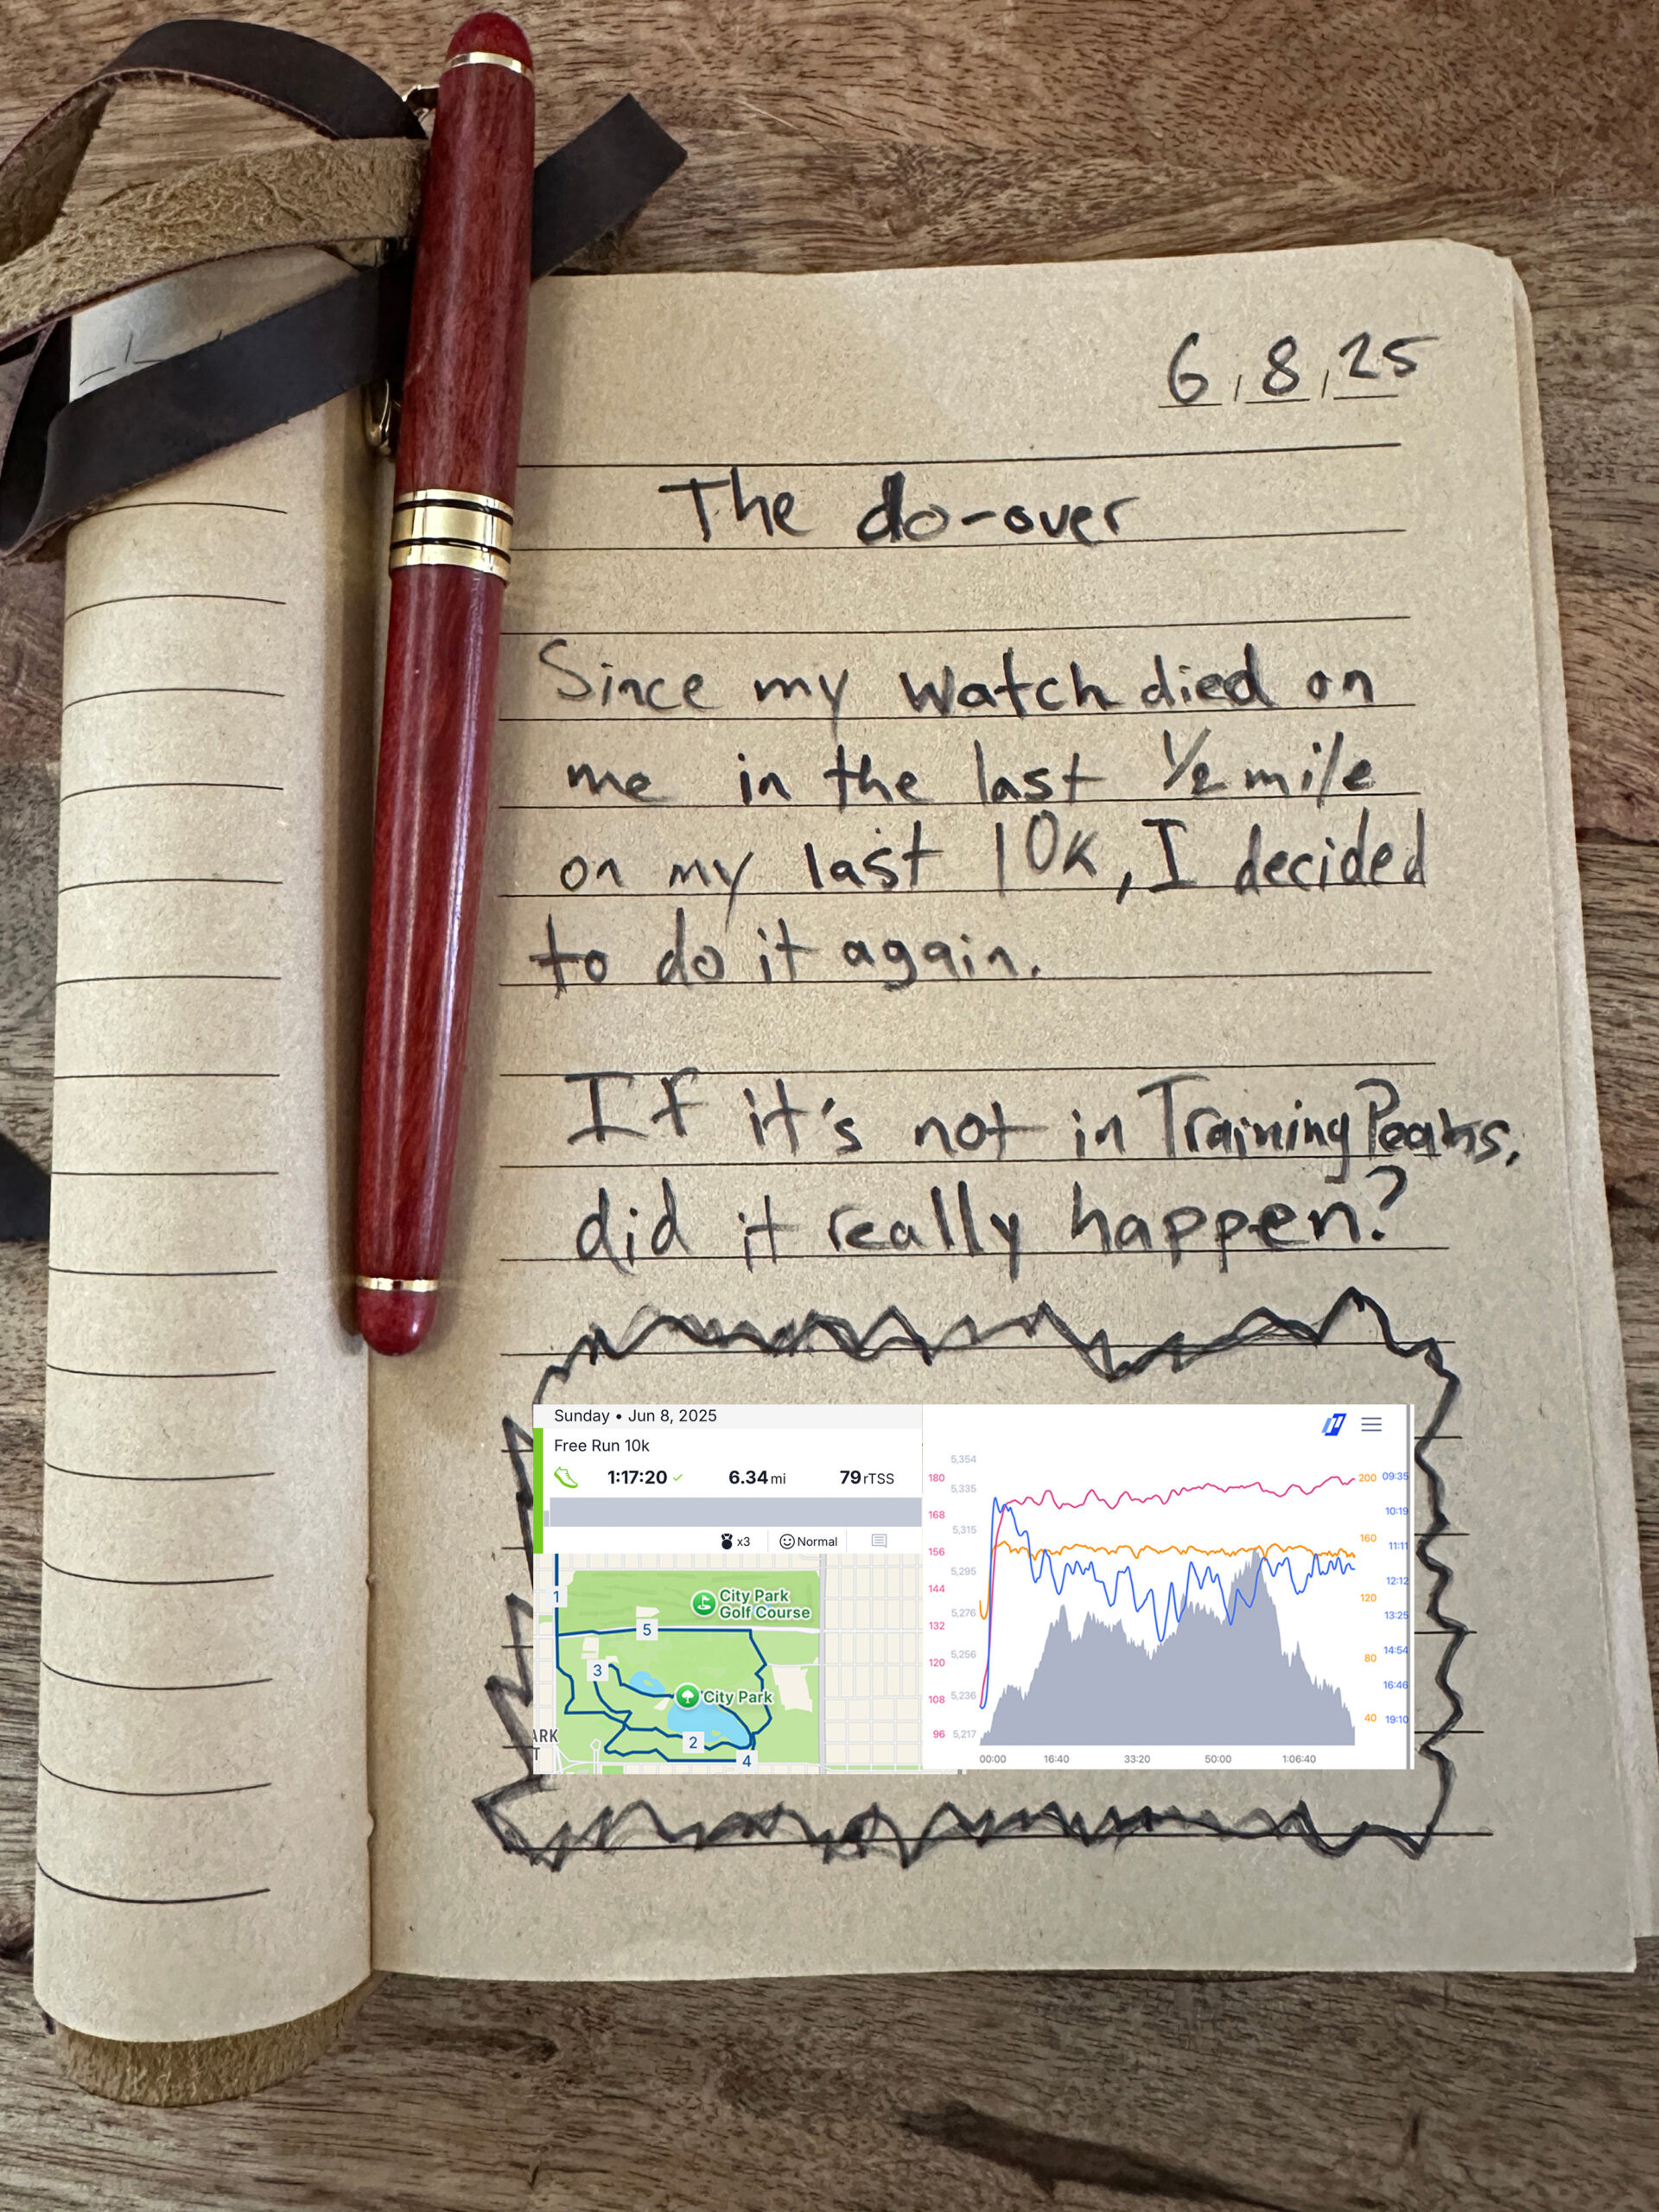 6/8/25
The do-over
Since my watch died on
me in the last 1/2 mile
on my last 10k, I decided
to do it again.
If it's not in TrainingPeaks,
did it really happen?
Sunday • Jun 8, 2025
Free Run 10k
1:17:20 6.34 mi 79 rTSS
x3 Normal
1
City Park
Golf Course
5
3
City Park
ARK
T
2
4
5,354
180 5,335 200 09:35
168 5,315 10:19
160
156 11:11
144 5,295 12:12
120
132 5,276 13:25
120 5,256 80 14:54
108 5,236 16:46
96 5,217 40 19:10
00:00 16:40 33:20 50:00 1:06:40